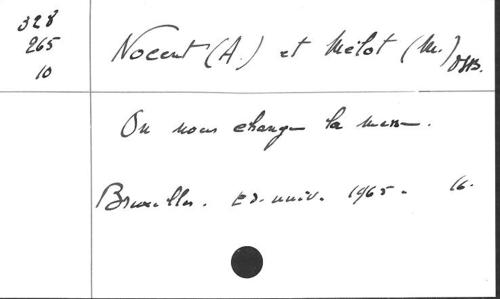 328
265
10
Nocent (A.) et Mélot (M.) OSB.
On nous change la messe.
Bruxelles. Ed. univ. 1965. 16.